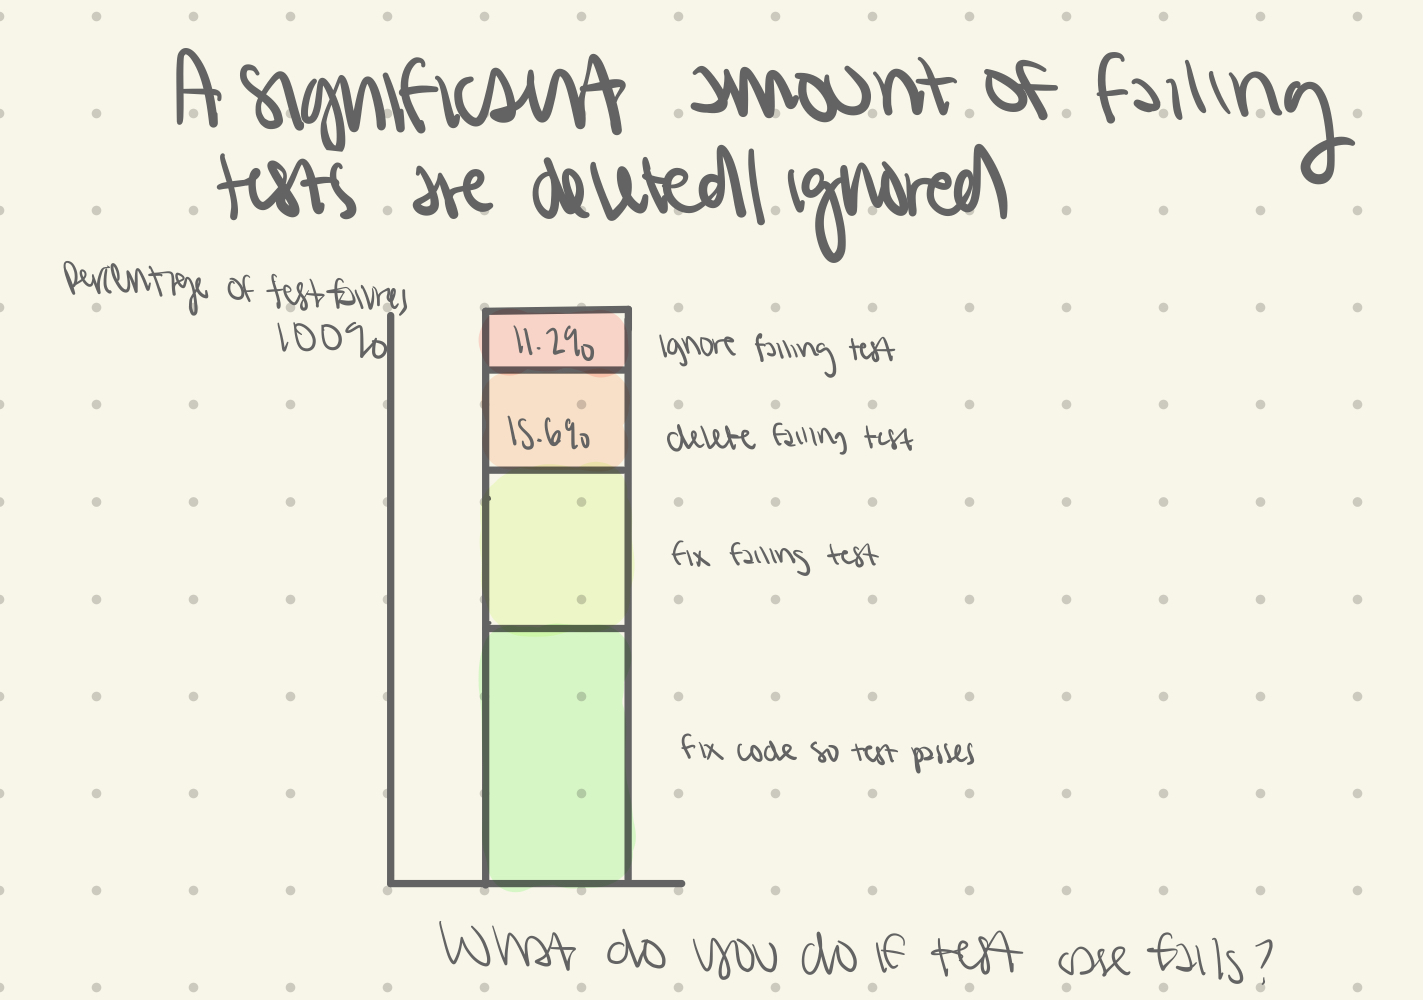 A significant amount of failing
tests are deleted/ignored
Percentage of test failures
100%
11.2%
ignore failing test
15.6%
delete failing test
fix failing test
fix code so test passes
What do you do if test case fails?